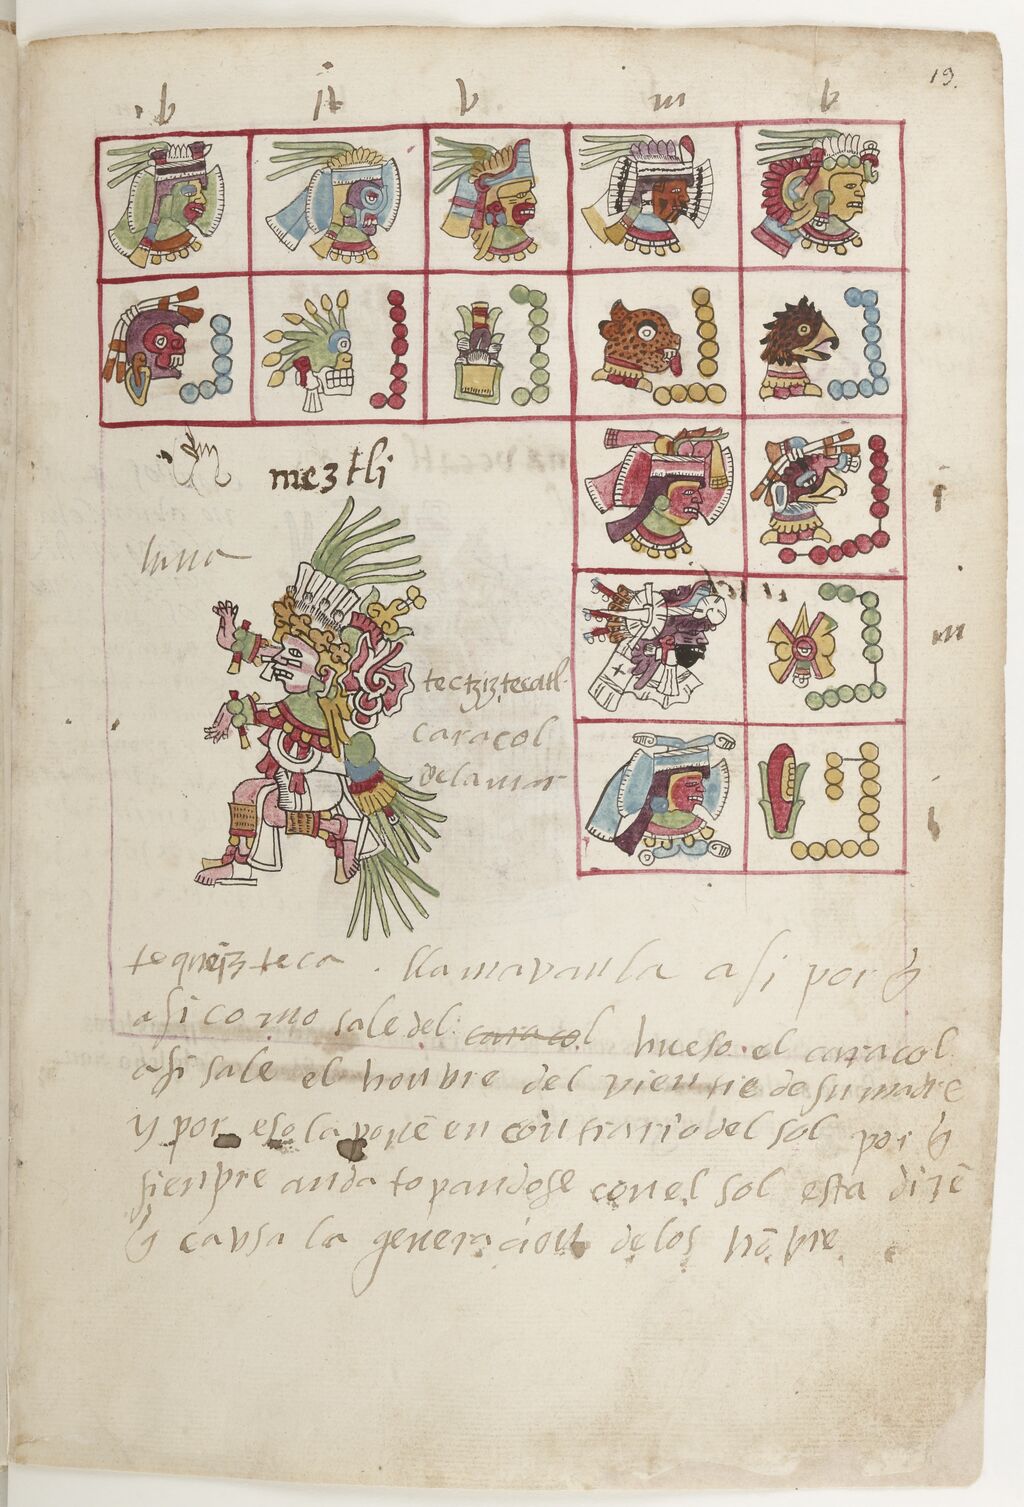 19.
b
b
m
b
meztli
luna
tectziztecatl
caracol
delamar
m
llamavanla asi por q̃
asi como sale del caracol hueso el caracol
asi sale el honbre del vientre de su madre
y por eso la ponē en contrario del sol por q̃
sienpre anda topandose con el sol esta dizē
q̃ causa la generacion delos hōbre